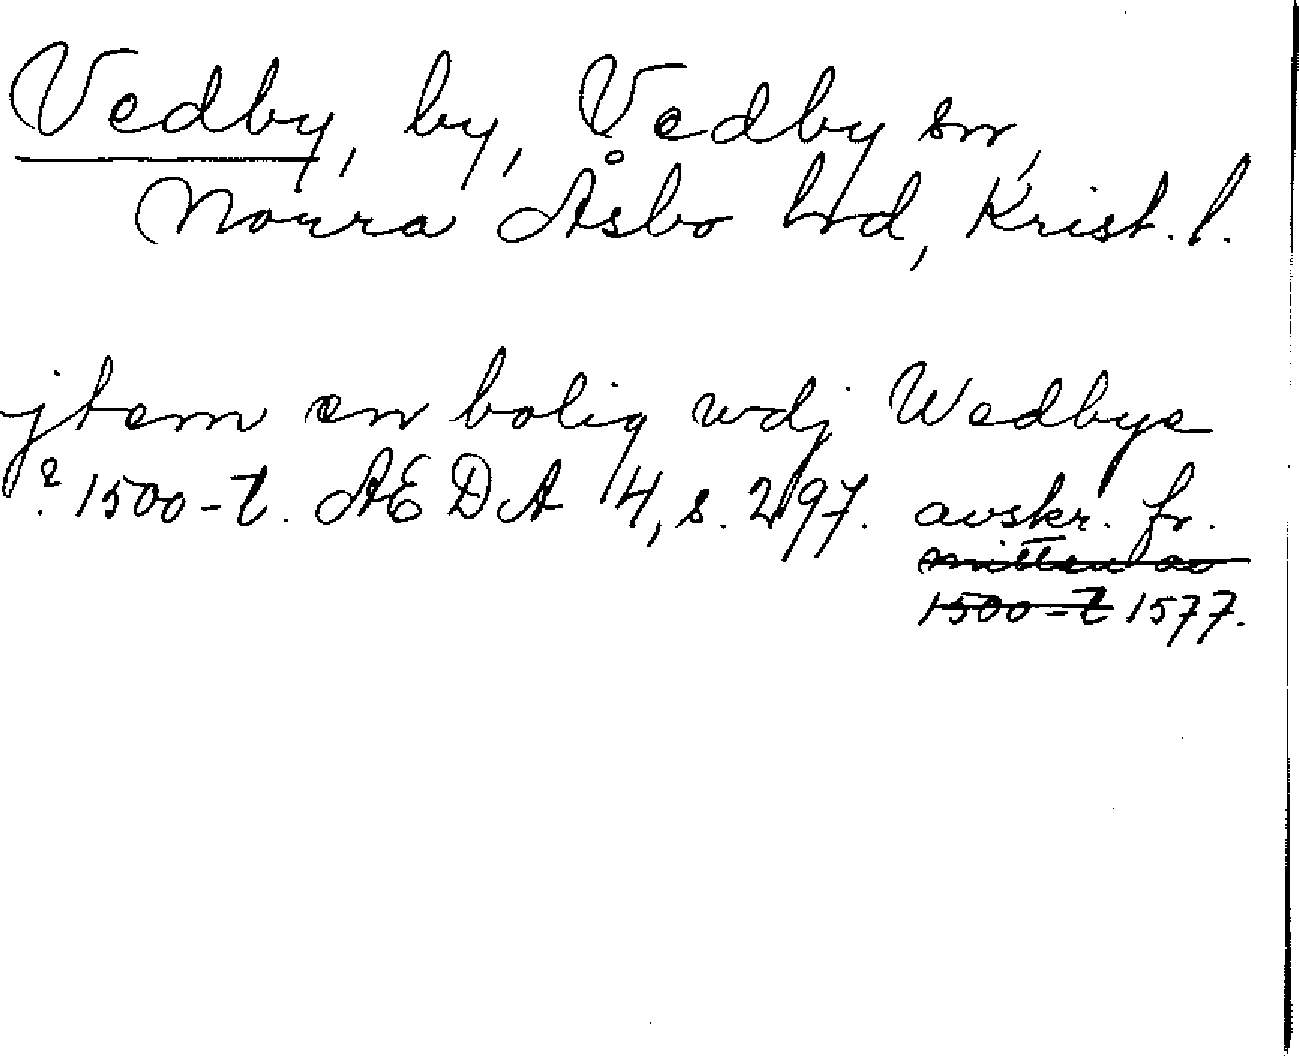 Vedby, by, Vedby sn,
Norra Åsbo hrd, Krist. l.
jtem en bolig wdj Wedbye
? 1500-t. AEDA 4, s. 297. avskr. fr.
mitten av
1500-t 1577.